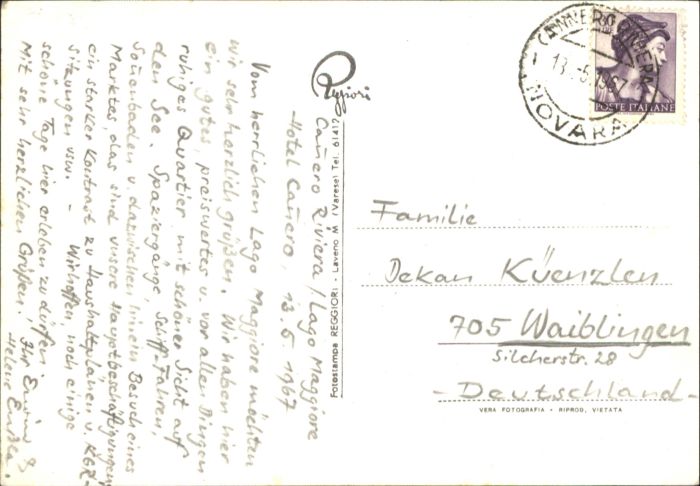 Cañero Riviera / Lago Maggiore
Hotel Cañero, 13.5.1967
Vom herrlichen Lago Maggiore möchten
wir sehr herzlich grüßen. Wir haben hier
ein gutes, preiswertes u. vor allen Dingen
ruhiges Quartier mit schöner Sicht auf
den See. Spaziergänge, Schiff-Fahren,
Sonnenbaden u. dazwischen hinein Besuch eines
Marktes, das sind unsere Hauptbeschäftigungen,
ein starker Kontrast zu Haushaltplänen u. KGR-
sitzungen usw. - Wir hoffen, noch einige
schöne Tage hier erleben zu dürfen.
Mit sehr herzlichen Grüßen Ihr Erwin &
Helene
Reggiori
Fotostampa REGGIORI - Laveno M. (Varese) Tel. 61412
CANNERO RIVIERA
13.-5.196
NOVARA
POSTE ITALIANE
Familie
Dekan Küenzlen
705 Waiblingen
Silcherstr. 28
- Deutschland -
VERA FOTOGRAFIA - RIPROD. VIETATA